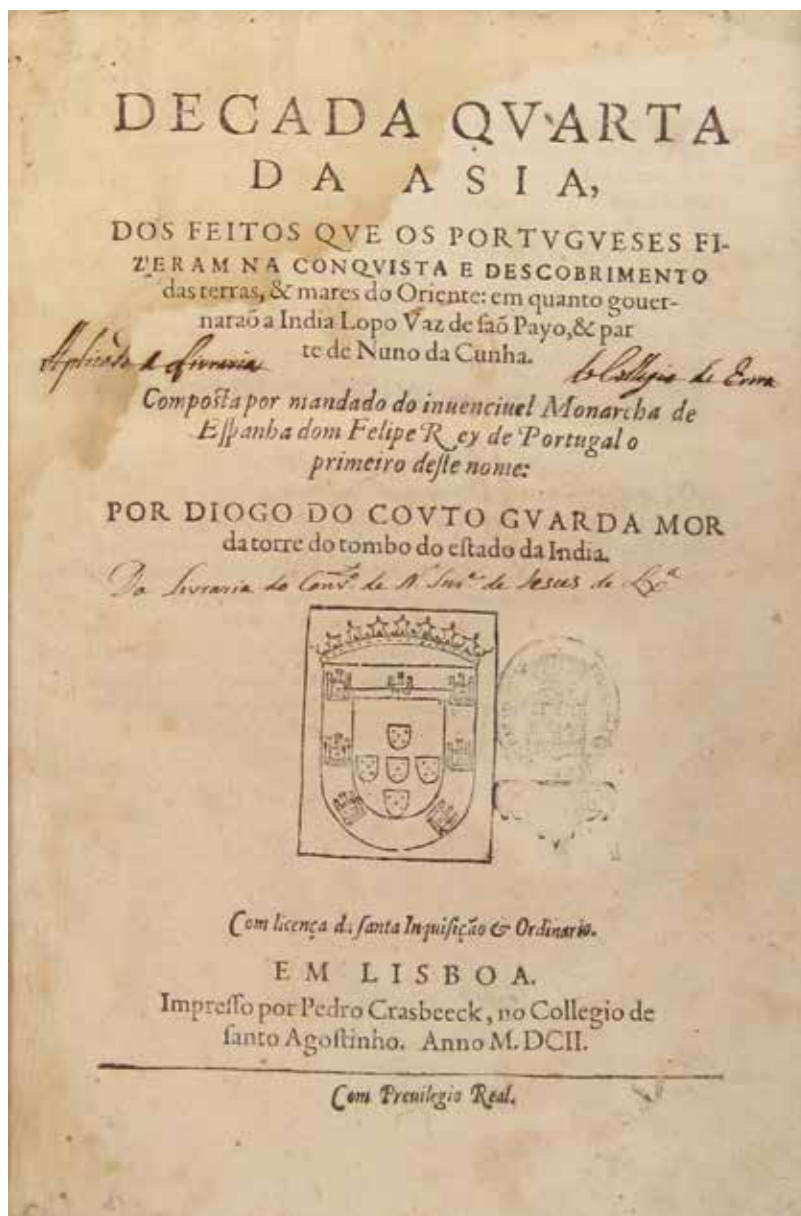 DECADA QVARTA
DA ASIA,
DOS FEITOS QVE OS PORTVGVESES FI-
ZERAM NA CONQVISTA E DESCOBRIMENTO
das terras, & mares do Oriente: em quanto gouer-
naraõ a India Lopo Vaz de saõ Payo, & par
te de Nuno da Cunha.
Aplicado a Livraria do Collegio de Evora
Composta por mandado do inuenciuel Monarcha de
Espanha dom Felipe Rey de Portugal o
primeiro deste nome:
POR DIOGO DO COVTO GVARDA MOR
da torre do tombo do estado da India.
Da Livraria do Conv.to de N. Snr.a de Jesus de Lx.a
Com licença da santa Inquisição & Ordinario.
EM LISBOA.
Impresso por Pedro Crasbeeck, no Collegio de
santo Agostinho. Anno M.DCII.
Com Preuilegio Real.